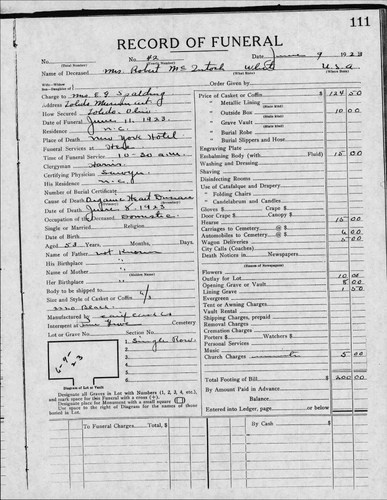 111
RECORD OF FUNERAL
No. No. 42 Date 9 1923
(Total Number) (Yearly Number)
Name of Deceased Mrs. Robert McIntosh White U.S.a
(What Race) (Where Born)
Charge to Mrs. E. J. Spalding
Address Toledo Museum art
How Secured Toledo, Ohio
Date of Funeral June 11, 1923
Residence N.C.
Place of Death New York Hotel
Funeral Services at Here
Time of Funeral Service 10-30 a.m.
Clergyman Harris
Certifying Physician Sawyer
His Residence N.C.
Number of Burial Certificate
Cause of Death Organic Heart Disease
Date of Death June 8, 1923
Occupation of the Deceased Domestic
Single or Married Religion
Date of Birth
Aged 53 Years, Months, Days.
Name of Father not Known
His Birthplace
Name of Mother
(Maiden Name)
Her Birthplace
Body to be shipped to
Size and Style of Casket or Coffin 6/3
Manufactured by
Interment at Cemetery
Lot or Grave No. Section No.
1 Single Row
2
3
4
5
6
7
8
Diagram of Lot or Vault
Designate all Graves in Lot with Numbers (1, 2, 3, 4, etc.),
and mark space for this Funeral with a cross (+).
Designate place for Monument with a small square
Use space to right of Diagram for the names of those
buried in Lot.
Order Given by
Price of Casket or Coffin $ 124 50
(State Kind)
" Metallic Lining
(State Kind)
" Outside Box 10 00
(State Kind)
" Grave Vault
(State Kind)
" Burial Robe
" Burial Slippers and Hose
Engraving Plate
Embalming Body (with Fluid) 15 00
Washing and Dressing
Shaving
Disinfecting Rooms
Use of Catafalque and Drapery
" Folding Chairs
" Candelabrum and Candles
Gloves $ Crape $
Door Crape $ Canopy $
Hearse 15 00
Carriages to Cemetery @ $
Automobiles to Cemetery @ $ 6 00
Wagon Deliveries 5 00
City Calls (Coaches)
Death Notices in Newspapers
(Names of Newspapers)
Flowers
Outlay for Lot 10 00
Opening Grave or Vault 8 00
Lining Grave 1 50
Evergreen
Tent or Awning Charges
Vault Rental
Shipping Charges, prepaid
Removal Charges
Cremation Charges
Porters $ Watchers $
Personal Services
Music
Church Charges 5 00
Total Footing of Bill $ 200 00
By Amount Paid in Advance
Balance
Entered into Ledger, page or below
To Funeral Charges. Total, $
By Cash $